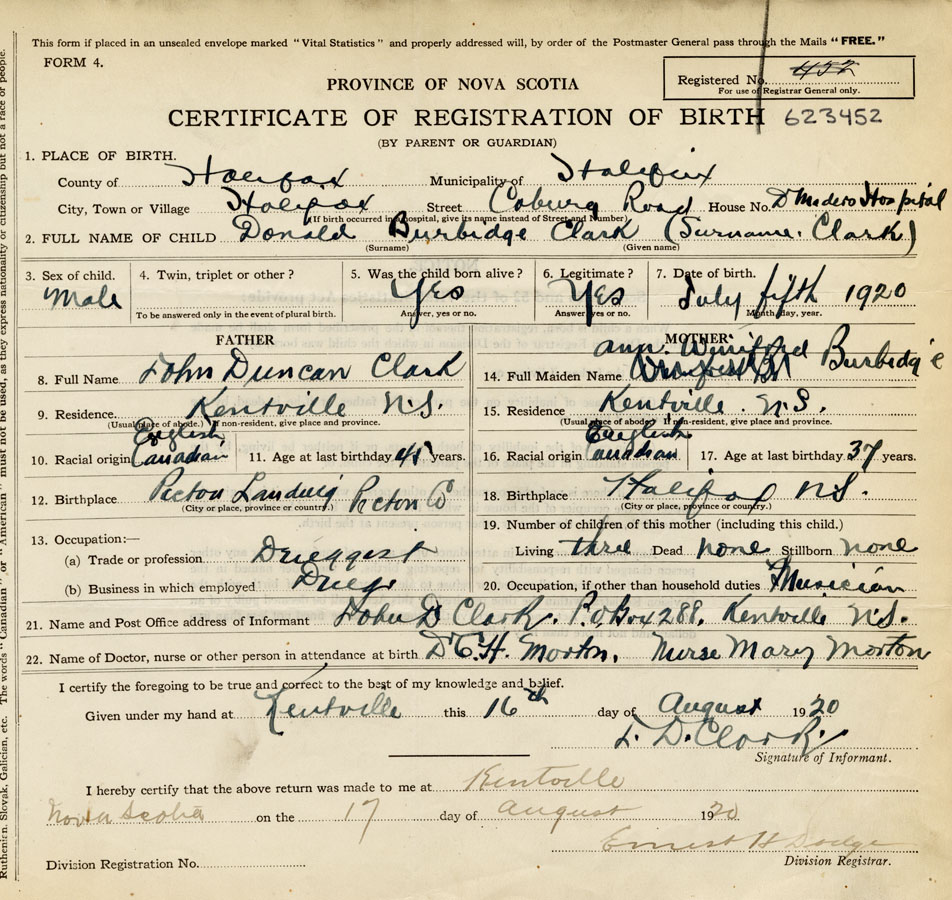 This form if placed in an unsealed envelope marked "Vital Statistics" and properly addressed will, by order of the Postmaster General pass through the Mails "FREE."
FORM 4.
PROVINCE OF NOVA SCOTIA
Registered No. 452
For use of Registrar General only.
CERTIFICATE OF REGISTRATION OF BIRTH 623452
(BY PARENT OR GUARDIAN)
1. PLACE OF BIRTH.
County of Halifax Municipality of Halifax
City, Town or Village Halifax Street Coburg Road House No. Hospital
(If birth occurred in hospital, give its name instead of Street and Number)
2. FULL NAME OF CHILD Donald Burbidge Clark (Surname. Clark)
(Surname) (Given name)
3. Sex of child. 4. Twin, triplet or other? 5. Was the child born alive? 6. Legitimate? 7. Date of birth.
Male Yes Yes July fifth 1920
To be answered only in the event of plural birth. Answer, yes or no. Answer, yes or no. Month, day, year.
FATHER MOTHER
8. Full Name John Duncan Clark 14. Full Maiden Name Ann. Winifred Burbidge
9. Residence Kentville N.S. 15. Residence Kentville. N.S.
(Usual place of abode.) If non-resident, give place and province. (Usual place of abode.) If non-resident, give place and province.
English English
10. Racial origin Canadian 11. Age at last birthday 45 years. 16. Racial origin Canadian 17. Age at last birthday 37 years.
12. Birthplace Picton Landing Picton Co 18. Birthplace Halifax N.S.
(City or place, province or country.) (City or place, province or country.)
13. Occupation:— 19. Number of children of this mother (including this child.)
(a) Trade or profession Druggist Living three Dead none Stillborn none
(b) Business in which employed Drugs 20. Occupation, if other than household duties Musician
21. Name and Post Office address of Informant John D Clark. P.O. Box 288. Kentville N.S.
22. Name of Doctor, nurse or other person in attendance at birth Dr C.H. Morton, Nurse Mary Morton
I certify the foregoing to be true and correct to the best of my knowledge and belief.
Given under my hand at Kentville this 16th day of August 1920
J. D. Clark.
Signature of Informant.
I hereby certify that the above return was made to me at Kentville
Nova Scotia on the 17 day of August 1920
Ernest H Dodge
Division Registrar.
Division Registration No.
Ruthenien, Slovak, Galician, etc. The words "Canadian" or "American" must not be used, as they express nationality or citizenship but not a race or people.